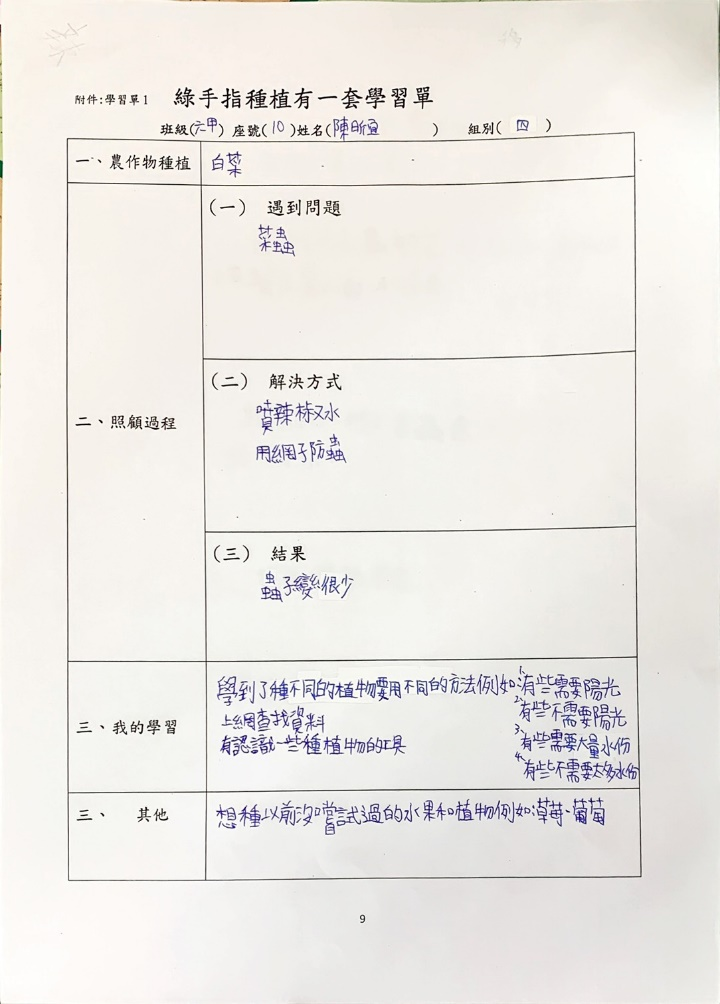 附件:學習單1 綠手指種植有一套學習單
班級(六甲) 座號(10)姓名(陳昕宜) 組別(四)
一、農作物種植 白菜
二、照顧過程
(一) 遇到問題
菜蟲
(二) 解決方式
噴辣椒水
用網子防蟲
(三) 結果
蟲子變很少
三、我的學習
學到了種不同的植物要用不同的方法例如 1、有些需要陽光
2、有些不需要陽光
3、有些需要大量水份
4、有些不需要太多水份
上網查找資料
有認識一些種植物的工具
三、 其他 想種以前沒嚐試過的水果和植物例如草莓、葡萄
9